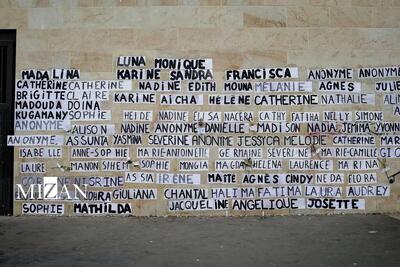 LUNA MONIQUE
MADALINA KARINE SANDRA FRANCISCA ANONYME ANONYME
CATHERINE CATHERINE NADINE EDITH MOUNA MELANIE AGNES JULIE
BRIGITTE CLAIRE KARINE AICHA HELENE CATHERINE NATHALIE
MADOUDA DOINA
KUGAMANY SOPHIE HEIDE NADINE ELISA NACERA CATHY FATIHA NELLY SIMONE
ANONYME ALISO NADINE ANONYME DANIELLE MADISON NADIA JEMIMA YVONNE
ANONYME ASSUNTA YASMINA SEVERINE ANONYME JESSYCA MELODIE CATHERINE
ISABELLE ANNE-SOPHIE MARIE-ANTOINETTE GERMAINE SEVERINE MARIE-CAMILLE
LAURE MANON SOPHIE MONICA MAGDA LAURENCE
NISRINE ASSIA IRENE MAITE AGNES CINDY NEDA FLORA
GIULIANA CHANTAL HALIMA FATIMA LAURA AUDREY
SOPHIE MATHILDA JACQUELINE ANGELIQUE JOSETTE
MIZAN